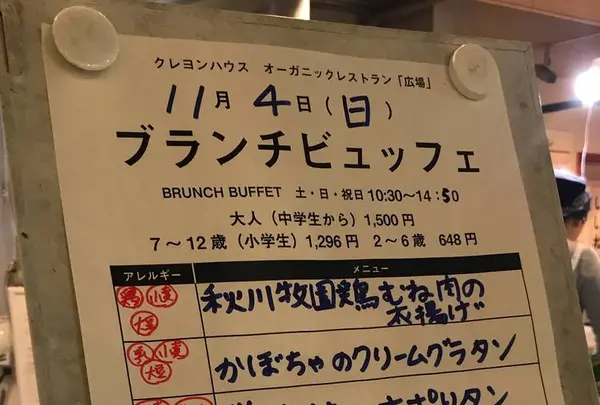 クレヨンハウス オーガニックレストラン「広場」
11月4日(日)
ブランチビュッフェ
BRUNCH BUFFET 土・日・祝日 10:30〜14:50
大人(中学生から)1,500円
7〜12歳(小学生)1,296円 2〜6歳 648円
アレルギー メニュー
鶏 小麦 秋川牧園鶏むね肉の
大豆 唐揚げ
乳 小麦 かぼちゃのクリームグラタン
大豆